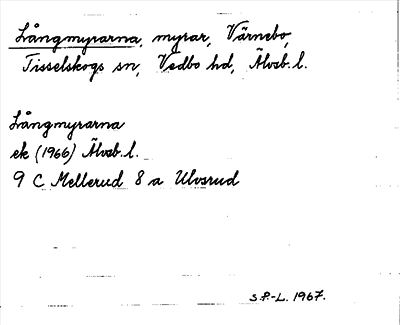 Långmyrarna, myrar, Värnebo,
Tisselskogs sn, Vedbo hd, Älvsb. l.
Långmyrarna
ek (1966) Älvsb. l.
9 C Mellerud 8 a Ulvsrud
S.P.-L. 1967.